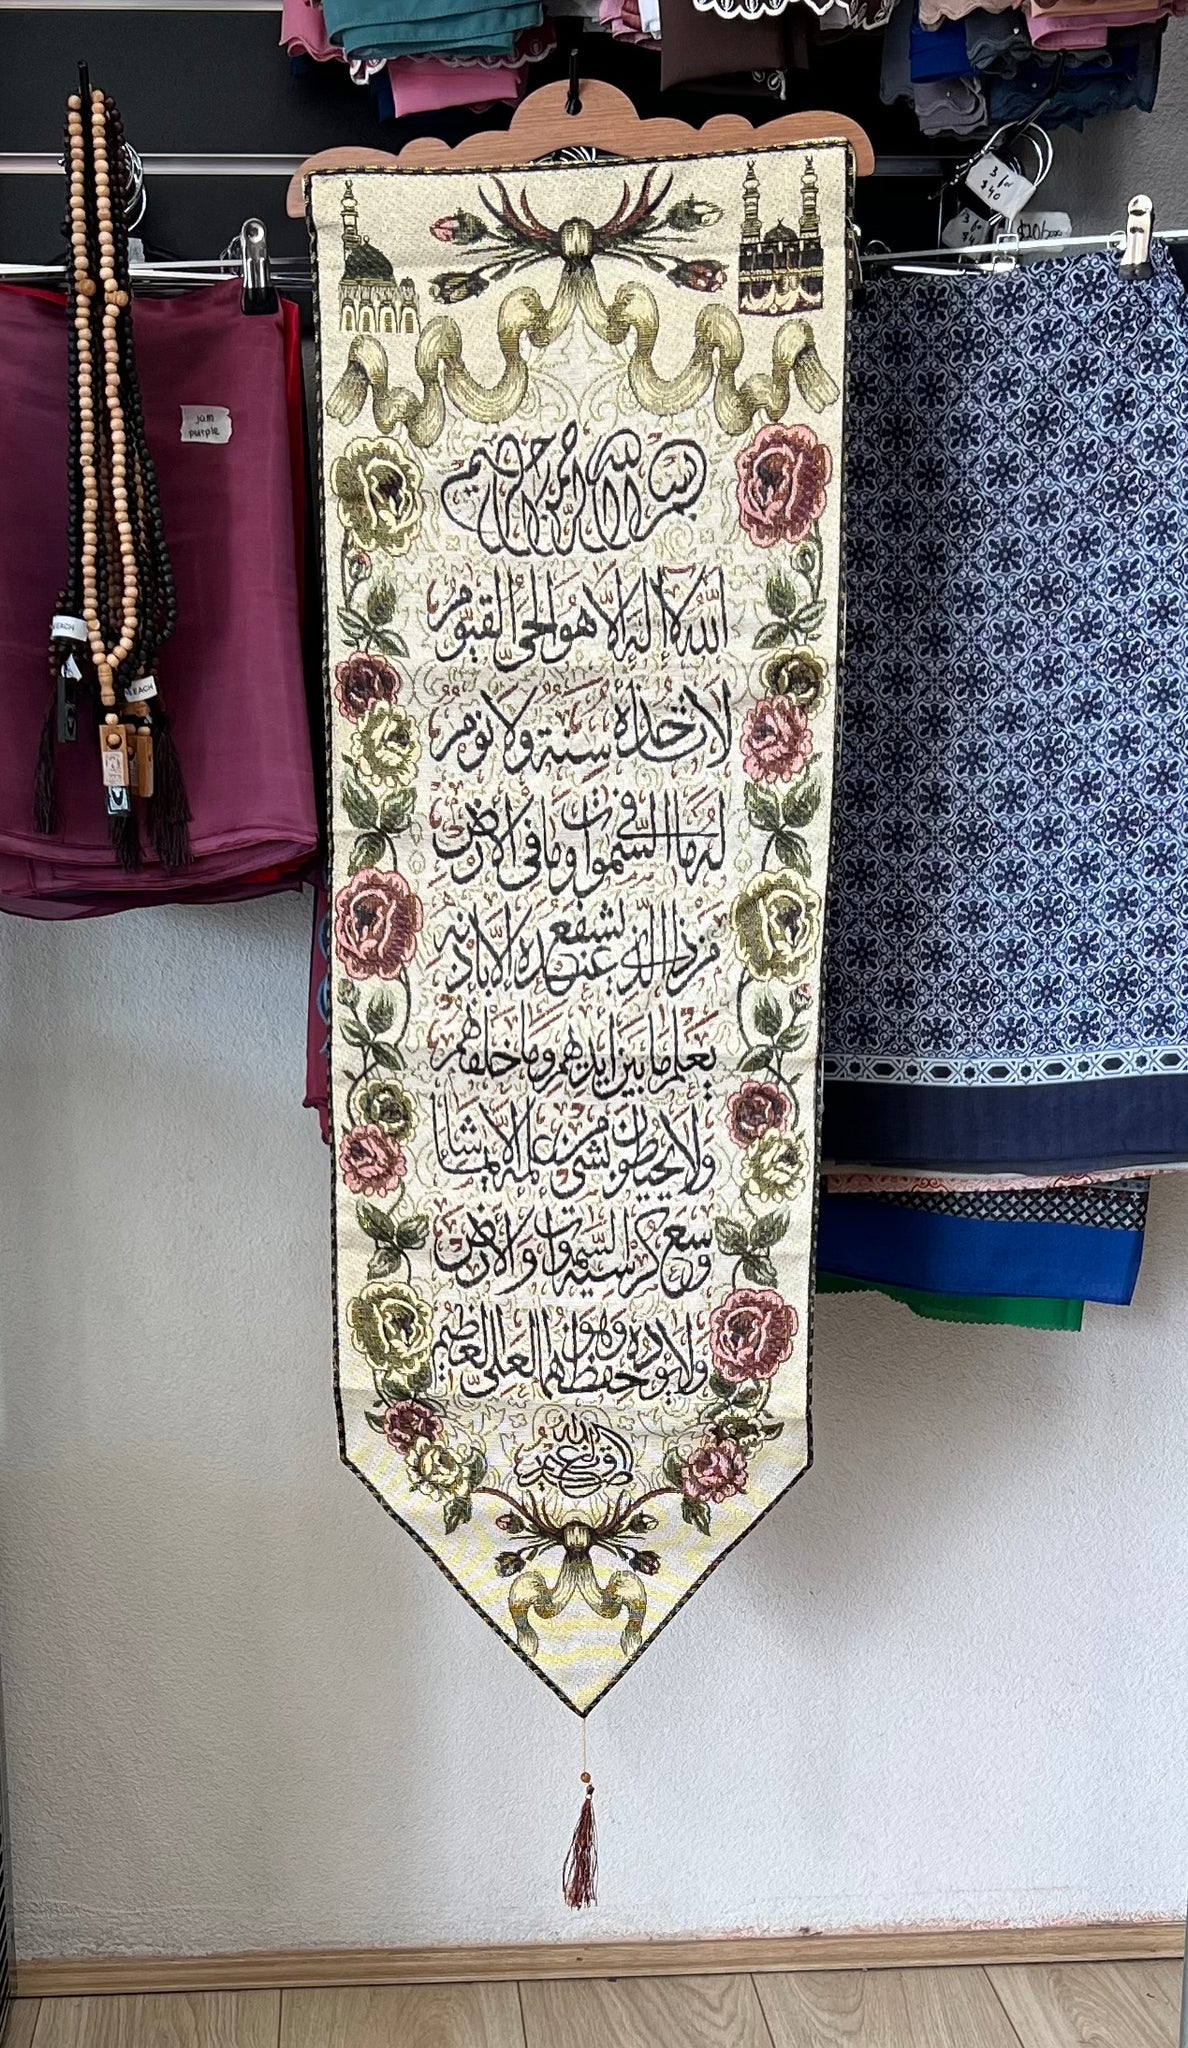 بسم الله الرحمن الرحيم
الله لا إله إلا هو الحي القيوم
لا تأخذه سنة ولا نوم
له ما في السموات وما في الأرض
من ذا الذي يشفع عنده إلا بإذنه
يعلم ما بين أيديهم وما خلفهم
ولا يحيطون بشيء من علمه إلا بما شاء
وسع كرسيه السموات والأرض
ولا يؤده حفظهما وهو العلي العظيم
صدق الله العظيم
jam
purple
EACH
EACH
3 for
$40